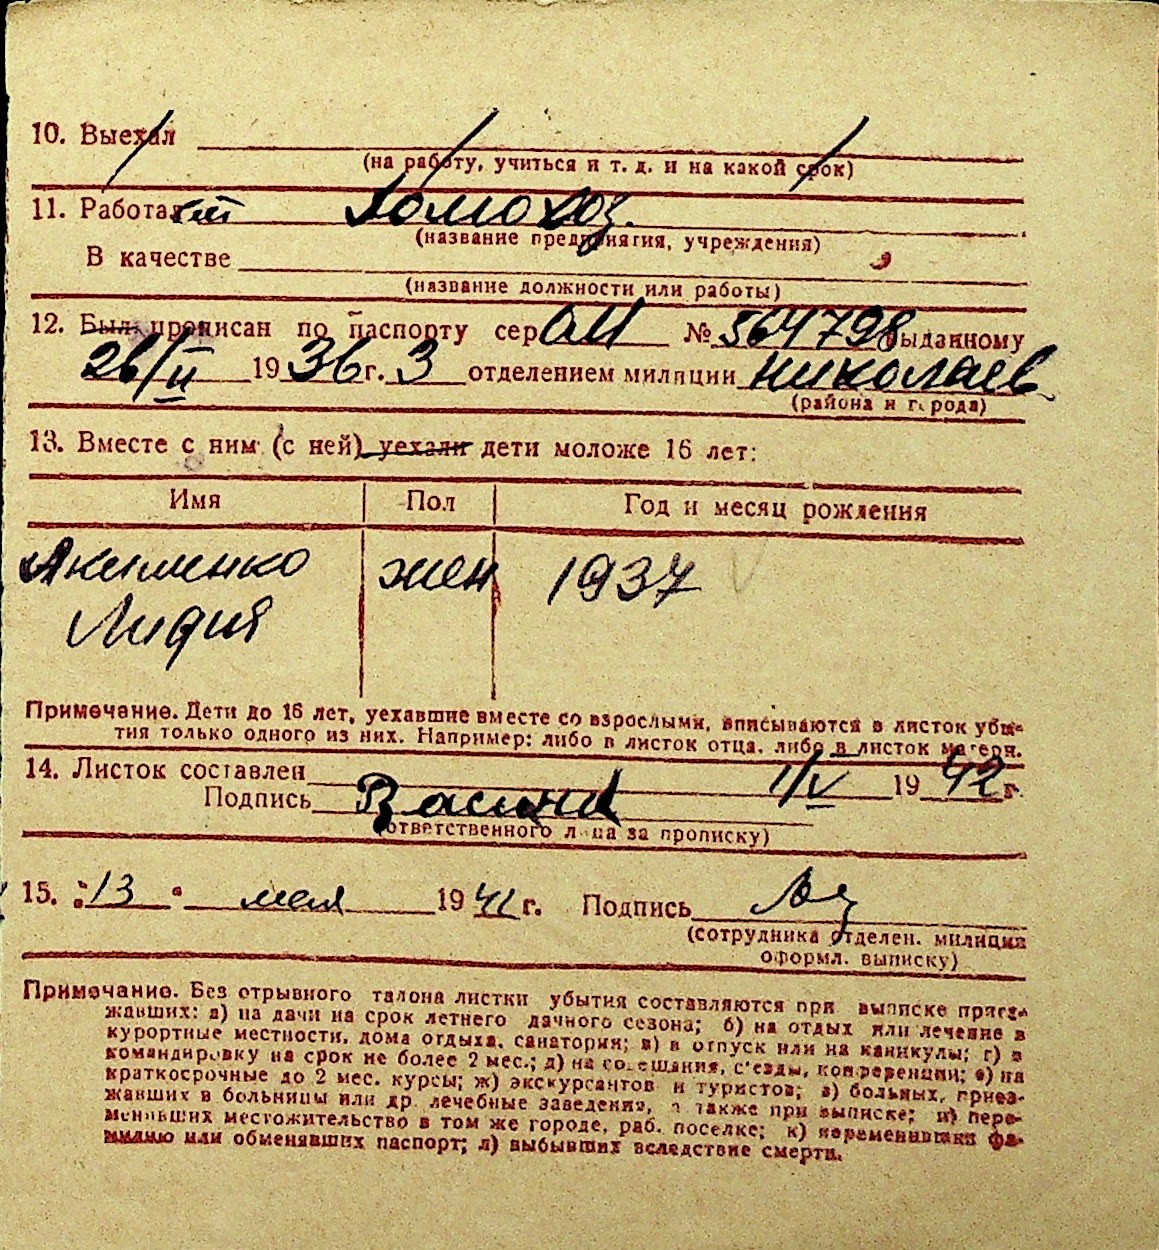 10. Выехал
(на работу, учиться и т. д. и на какой срок)
11. Работает Домохоз.
(название предприятия, учреждения)
В качестве
(название должности или работы)
12. Был прописан по паспорту сер АИ № 564798 выданному
26/II 1936 г. 3 отделением милиции Николаев
(района и города)
13. Вместе с ним (с ней) уехали дети моложе 16 лет:
Имя Пол Год и месяц рождения
Якименко жен 1937
Лидия
Примечание. Дети до 16 лет, уехавшие вместе со взрослыми, вписываются в листок убы-
тия только одного из них. Например: либо в листок отца, либо в листок матери.
14. Листок составлен 1/V 1942 г.
Подпись
(ответственного лица за прописку)
15. "13" мая 1942 г. Подпись
(сотрудника отделен. милиции
оформл. выписку)
Примечание. Без отрывного талона листки убытия составляются при выписке приез-
жавших: а) на дачи на срок летнего дачного сезона; б) на отдых или лечение в
курортные местности, дома отдыха, санатории; в) в отпуск или на каникулы; г) в
командировку на срок не более 2 мес.; д) на совещания, с'езды, конференции; е) на
краткосрочные до 2 мес. курсы; ж) экскурсантов и туристов; з) больных, приез-
жавших в больницы или др. лечебные заведения, а также при выписке; и) пере-
менивших местожительство в том же городе, раб. поселке; к) переменивших фа-
милию или обменявших паспорт; л) выбывших вследствие смерти.